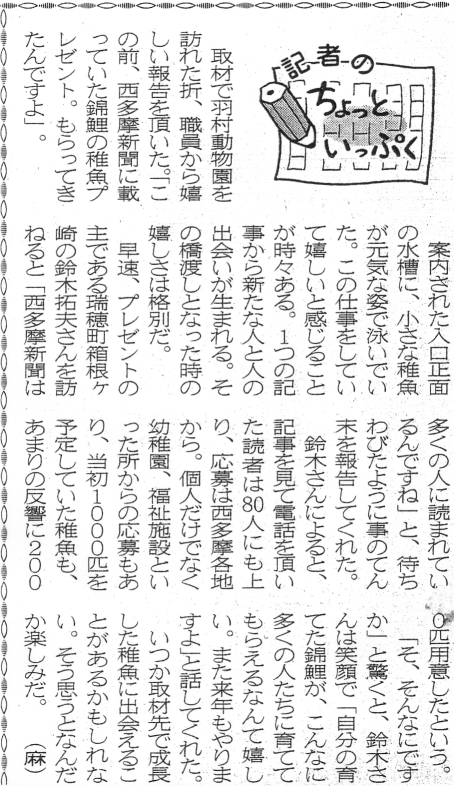 記者の
ちょっと
いっぷく
取材で羽村動物園を
訪れた折、職員から嬉
しい報告を頂いた。「こ
の前、西多摩新聞に載
っていた錦鯉の稚魚プ
レゼント。もらってき
たんですよ」。
案内された入口正面
の水槽に、小さな稚魚
が元気な姿で泳いでい
た。この仕事をしてい
て嬉しいと感じること
が時々ある。1つの記
事から新たな人と人の
出会いが生まれる。そ
の橋渡しとなった時の
嬉しさは格別だ。
早速、プレゼントの
主である瑞穂町箱根ヶ
崎の鈴木拓夫さんを訪
ねると「西多摩新聞は
多くの人に読まれてい
るんですね」と、待ち
わびたように事のてん
末を報告してくれた。
鈴木さんによると、
記事を見て電話を頂い
た読者は80人にも上
り、応募は西多摩各地
から。個人だけでなく
幼稚園、福祉施設とい
った所からの応募もあ
り、当初1000匹を
予定していた稚魚も、
あまりの反響に200
0匹用意したという。
「そ、そんなにです
か」と驚くと、鈴木さ
んは笑顔で「自分の育
てた錦鯉が、こんなに
多くの人たちに育てて
もらえるなんて嬉し
い。また来年もやりま
すよ」と話してくれた。
いつか取材先で成長
した稚魚に出会えるこ
とがあるかもしれな
い。そう思うとなんだ
か楽しみだ。　(麻)